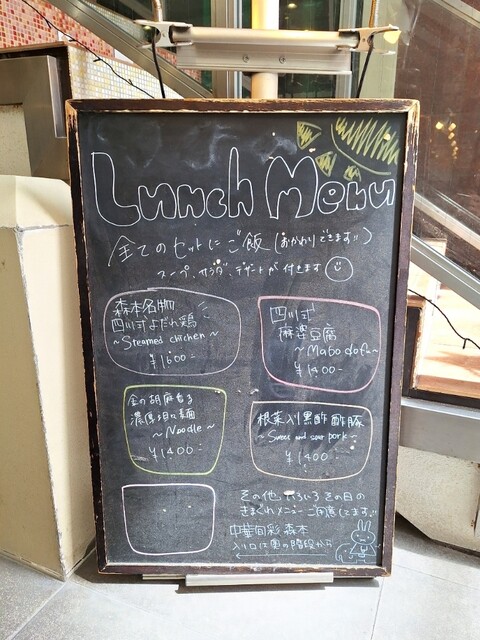 Lunch Menu
全てのセットにご飯(おかわりできます!!)
スープ、サラダ、デザートが付きます
森本名物!!!
四川式よだれ鶏
~Steamed chicken~
¥1600-
四川式
麻婆豆腐
~Mabo dofu~
¥1400-
金の胡麻香る
濃厚担々麺
~Noodle~
¥1400-
根菜入り黒酢酢豚
~Sweet and sour pork~
¥1400-
その他、いろいろその日の
きまぐれメニューご用意してます!!
中華旬彩 森本
入り口は奥の階段から